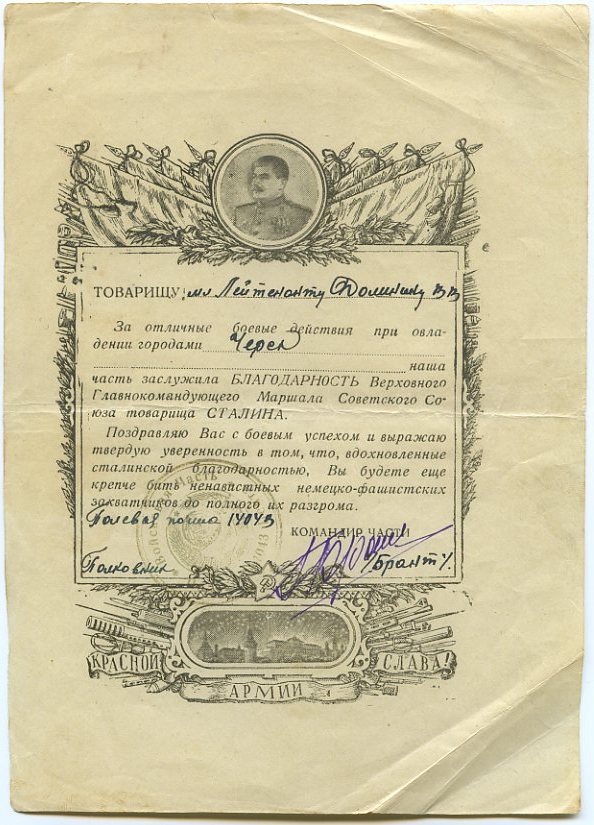 ТОВАРИЩУ мл Лейтенанту Долинину В В
За отличные боевые действия при овла-
дении городами Черск
наша
часть заслужила БЛАГОДАРНОСТЬ Верховного
Главнокомандующего Маршала Советского Со-
юза товарища СТАЛИНА.
Поздравляю Вас с боевым успехом и выражаю
твердую уверенность в том, что, вдохновленные
сталинской благодарностью, Вы будете еще
крепче бить ненавистных немецко-фашистских
захватчиков до полного их разгрома.
Полевая почта 14043
КОМАНДИР ЧАСТИ
Полковник /Брант/.
КРАСНОЙ АРМИИ СЛАВА!